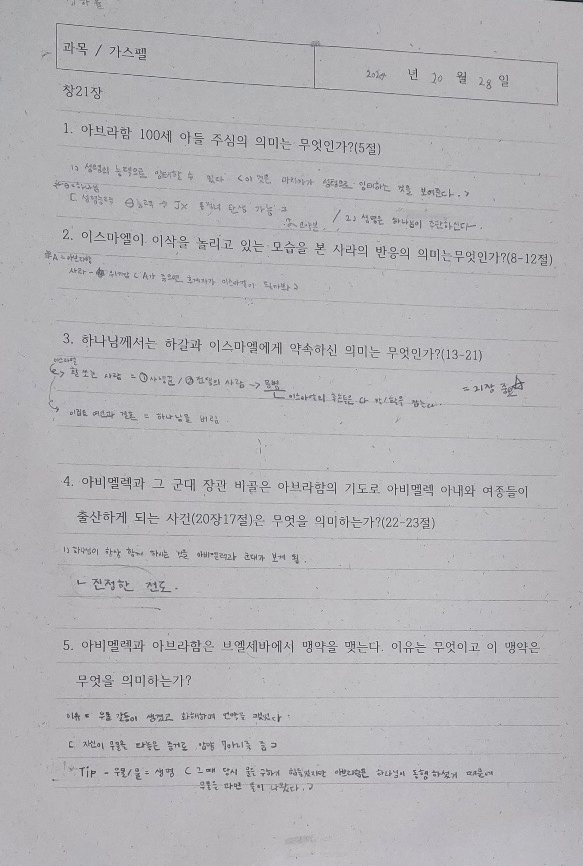 과목 / 가스펠
2024 년 10 월 28 일
창21장
1. 아브라함 100세 아들 주심의 의미는 무엇인가?(5절)
1) 성령의 능력으로 잉태할 수 있다 <이것은 마리아가 성령으로 잉태하는 것을 보여준다.>
/ 2) 생명은 하나님이 주관하신다.
2. 이스마엘이 이삭을 놀리고 있는 모습을 본 사라의 반응의 의미는무엇인가?(8-12절)
*A = 아브라함
3. 하나님께서는 하갈과 이스마엘에게 약속하신 의미는 무엇인가?(13-21)
이스마엘
활 쏘는 사람 = ① 사냥꾼 / ② 전쟁의 사람 →
이집트 여인과 결혼 = 하나님을 버림
4. 아비멜렉과 그 군대 장관 비골은 아브라함의 기도로 아비멜렉 아내와 여종들이
출산하게 되는 사건(20장17절)은 무엇을 의미하는가?(22-23절)
1) 하나님이 항상 함께 하시는 것을 아비멜렉과 군대가 보게 됨.
ㄴ진정한 전도.
5. 아비멜렉과 아브라함은 브엘세바에서 맹약을 맺는다. 이유는 무엇이고 이 맹약은
무엇을 의미하는가?
이유 = 우물 갈등이 생겼고 화해하며 언약을 맺었다.
[ 자신이 우물을 파놓은 증거로 암양 7마리를 줌 ]
Tip - 우물/물 = 생명 [ 그때 당시 물을 구하기 힘들었지만 아브라함은 하나님이 동행하셨기 때문에
우물을 파면 물이 나왔다. ]